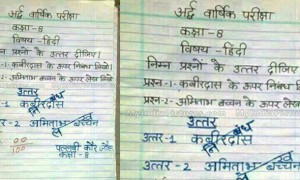 अर्द्ध वार्षिक परीक्षा
कक्षा - 8
विषय - हिंदी
निम्न प्रश्नों के उत्तर दीजिए।
प्रश्न-1- कबीरदास के ऊपर निबंध लिखो।
प्रश्न-2- अमिताभ बच्चन के ऊपर लेख लिखो
उत्तर
उत्तर-1 कबीरदास
उत्तर-2 अमिताभ बच्चन
कक्षा - 8
अर्द्ध वार्षिक परीक्षा
कक्षा - 8
विषय - हिंदी
निम्न प्रश्नों के उत्तर दीजिए
प्रश्न-1- कबीरदास के ऊपर निबंध
प्रश्न-2- अमिताभ बच्चन के ऊपर
उत्तर
उत्तर-1 कबीरदास
उत्तर-2 अमिताभ बच्चन